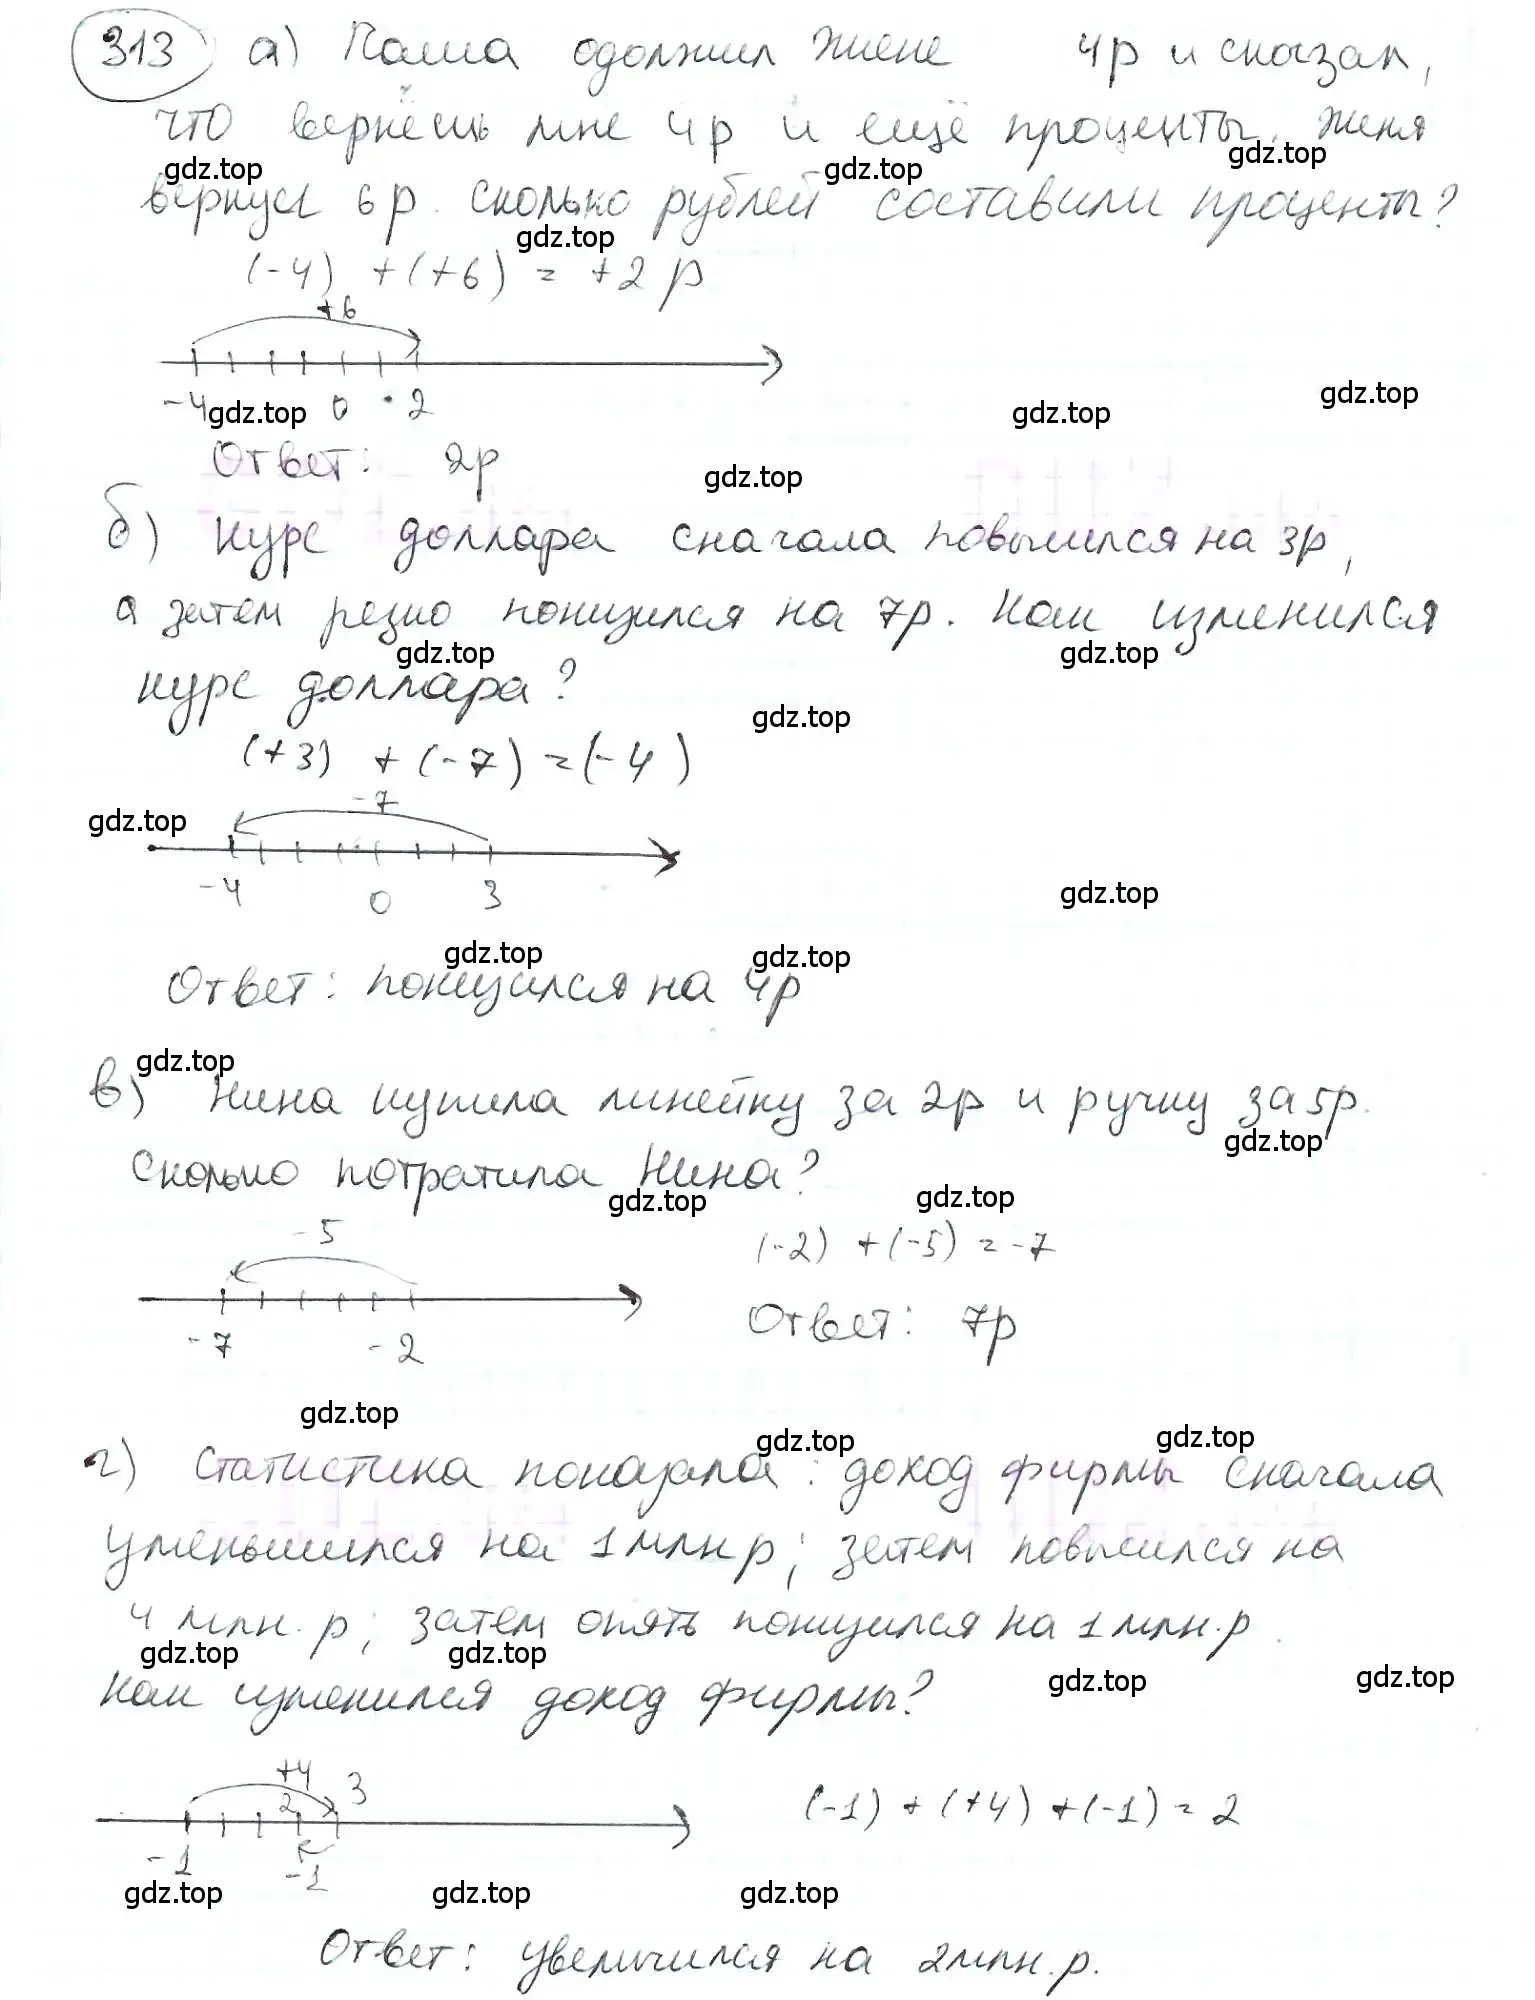 313 а) Паша одолжил Жене 4р и сказал,
что вернёшь мне 4р и ещё проценты. Женя
gdz.top gdz.top gdz.top
вернул 6р. Сколько рублей составили проценты?
gdz.top
(-4) + (+6) = +2 р
+6
-4 0 2
gdz.top gdz.top gdz.top
Ответ: 2р
gdz.top
б) Курс доллара сначала повысился на 3р,
а затем резко понизился на 7р. Как изменился
gdz.top gdz.top
курс доллара?
gdz.top
(+3) + (-7) = (-4)
-7
gdz.top
-4 0 3
gdz.top
gdz.top gdz.top
Ответ: понизился на 4р
gdz.top
в) Нина купила линейку за 2р и ручку за 5р.
gdz.top
Сколько потратила Нина?
gdz.top gdz.top
-5
(-2) + (-5) = -7
-7 -2
Ответ: 7р
gdz.top
gdz.top gdz.top
г) Статистика показала: доход фирмы сначала
уменьшился на 1 млн р; затем повысился на
4 млн. р; затем опять понизился на 1 млн. р.
gdz.top gdz.top
Как изменился доход фирмы?
gdz.top gdz.top
+4 3
2
(-1) + (+4) + (-1) = 2
-1 -1
gdz.top gdz.top gdz.top
Ответ: увеличился на 2 млн. р.